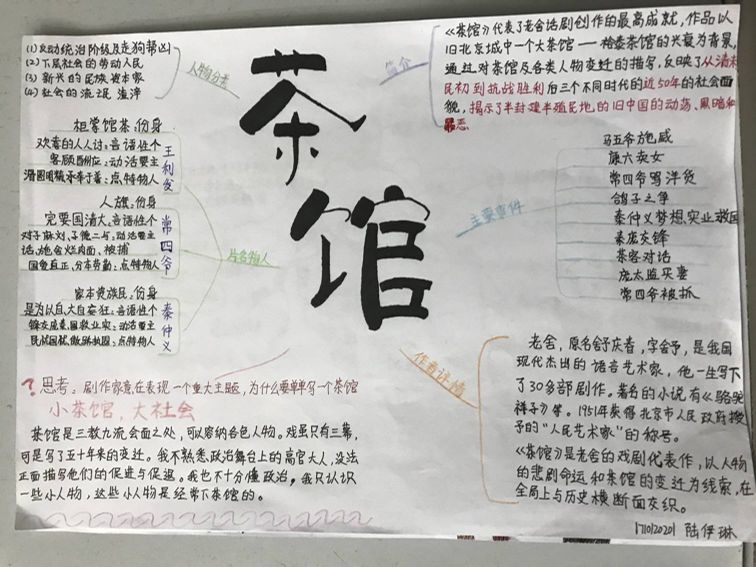 茶馆
人物分类
(1)反动统治阶级及走狗帮凶
(2)下层社会的劳动人民
(3)新兴的民族资本家
(4)社会的流氓渣滓
简介
《茶馆》代表了老舍话剧创作的最高成就,作品以
旧北京城中一个大茶馆——裕泰茶馆的兴衰为背景,
通过对茶馆及各类人物变迁的描写,反映了从清末
民初到抗战胜利后三个不同时代的近50年的社会面
貌,揭示了半封建半殖民地的旧中国的动荡、黑暗和
罪恶
人物名片
王利发
身份:茶馆掌柜
个性语言:讨人人的喜欢
主要活动:应酬顾客
人物特点:善于
精明圆滑
常四爷
身份:旗人
个性语言:大清国要完
主要活动:与二德子、刘麻子对
话、
烂肉面、被捕
人物特点:勤劳本分、正直爱国
秦仲义
身份:民族资本家
个性语言:狂妄自大、自以为是
主要活动:实业救国、秦庞交锋
人物特点:
主要事件
马五爷施威
康六卖女
常四爷骂洋货
鸽子之争
秦仲义梦想实业救国
秦庞交锋
茶客对话
庞太监买妻
常四爷被抓
?思考:剧作家意在表现一个重大主题,为什么要单单写一个茶馆
小茶馆,大社会
茶馆是三教九流会面之处,可以容纳各色人物。戏虽只有三幕,
可是写了五十年来的变迁。我不熟悉政治舞台上的高官大人,没法
正面描写他们的促进与促退。我也不十分懂政治,我只认识
一些小人物,这些小人物是经常下茶馆的。
作者详情
老舍,原名舒庆春,字舍予,是我国
现代杰出的语言艺术家,他一生写下
了30多部剧作。著名的小说有《骆驼
祥子》等。1951年获得北京市人民政府授
予的“人民艺术家”的称号。
《茶馆》是老舍的戏剧代表作,以人物
的悲剧命运和茶馆的变迁为线索,在
全局上与历史横断面交织。
171012020 陆伊琳